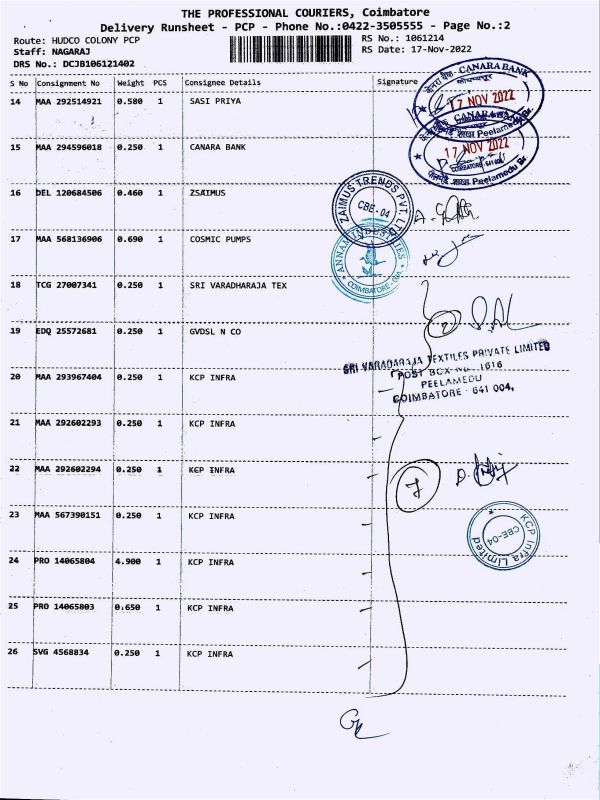 THE PROFESSIONAL COURIERS, Coimbatore
Delivery Runsheet - PCP - Phone No.:0422-3505555 - Page No.:2
Route: HUDCO COLONY PCP
RS No.: 1061214
Staff: NAGARAJ
RS Date: 17-Nov-2022
DRS No.: DCJB106121402
S No Consignment No Weight PCS Consignee Details Signature
14 MAA 292514921 0.580 1 SASI PRIYA
CANARA BANK
17 NOV 2022
15 MAA 294596018 0.250 1 CANARA BANK
CANARA BANK
Peelamedu Br.
17 NOV 2022
COIMBATORE-641 004
Peelamedu Br.
16 DEL 120684506 0.460 1 ZSAIMUS
ZAIMUS TRENDS PVT. LTD
CBE-04
17 MAA 568136906 0.690 1 COSMIC PUMPS
ANNAM INDUSTRIES
COIMBATORE - 004
18 TCG 27007341 0.250 1 SRI VARADHARAJA TEX
2
19 EDQ 25572681 0.250 1 GVDSL N CO
SRI VARADARAJA TEXTILES PRIVATE LIMITED
POST BOX No. 1616
PEELAMEDU
COIMBATORE - 641 004.
20 MAA 293967404 0.250 1 KCP INFRA
21 MAA 292602293 0.250 1 KCP INFRA
22 MAA 292602294 0.250 1 KCP INFRA
7
23 MAA 567390151 0.250 1 KCP INFRA
KCP Infra Limited
CBE-04
24 PRO 14065804 4.900 1 KCP INFRA
25 PRO 14065803 0.650 1 KCP INFRA
26 SVG 4568834 0.250 1 KCP INFRA